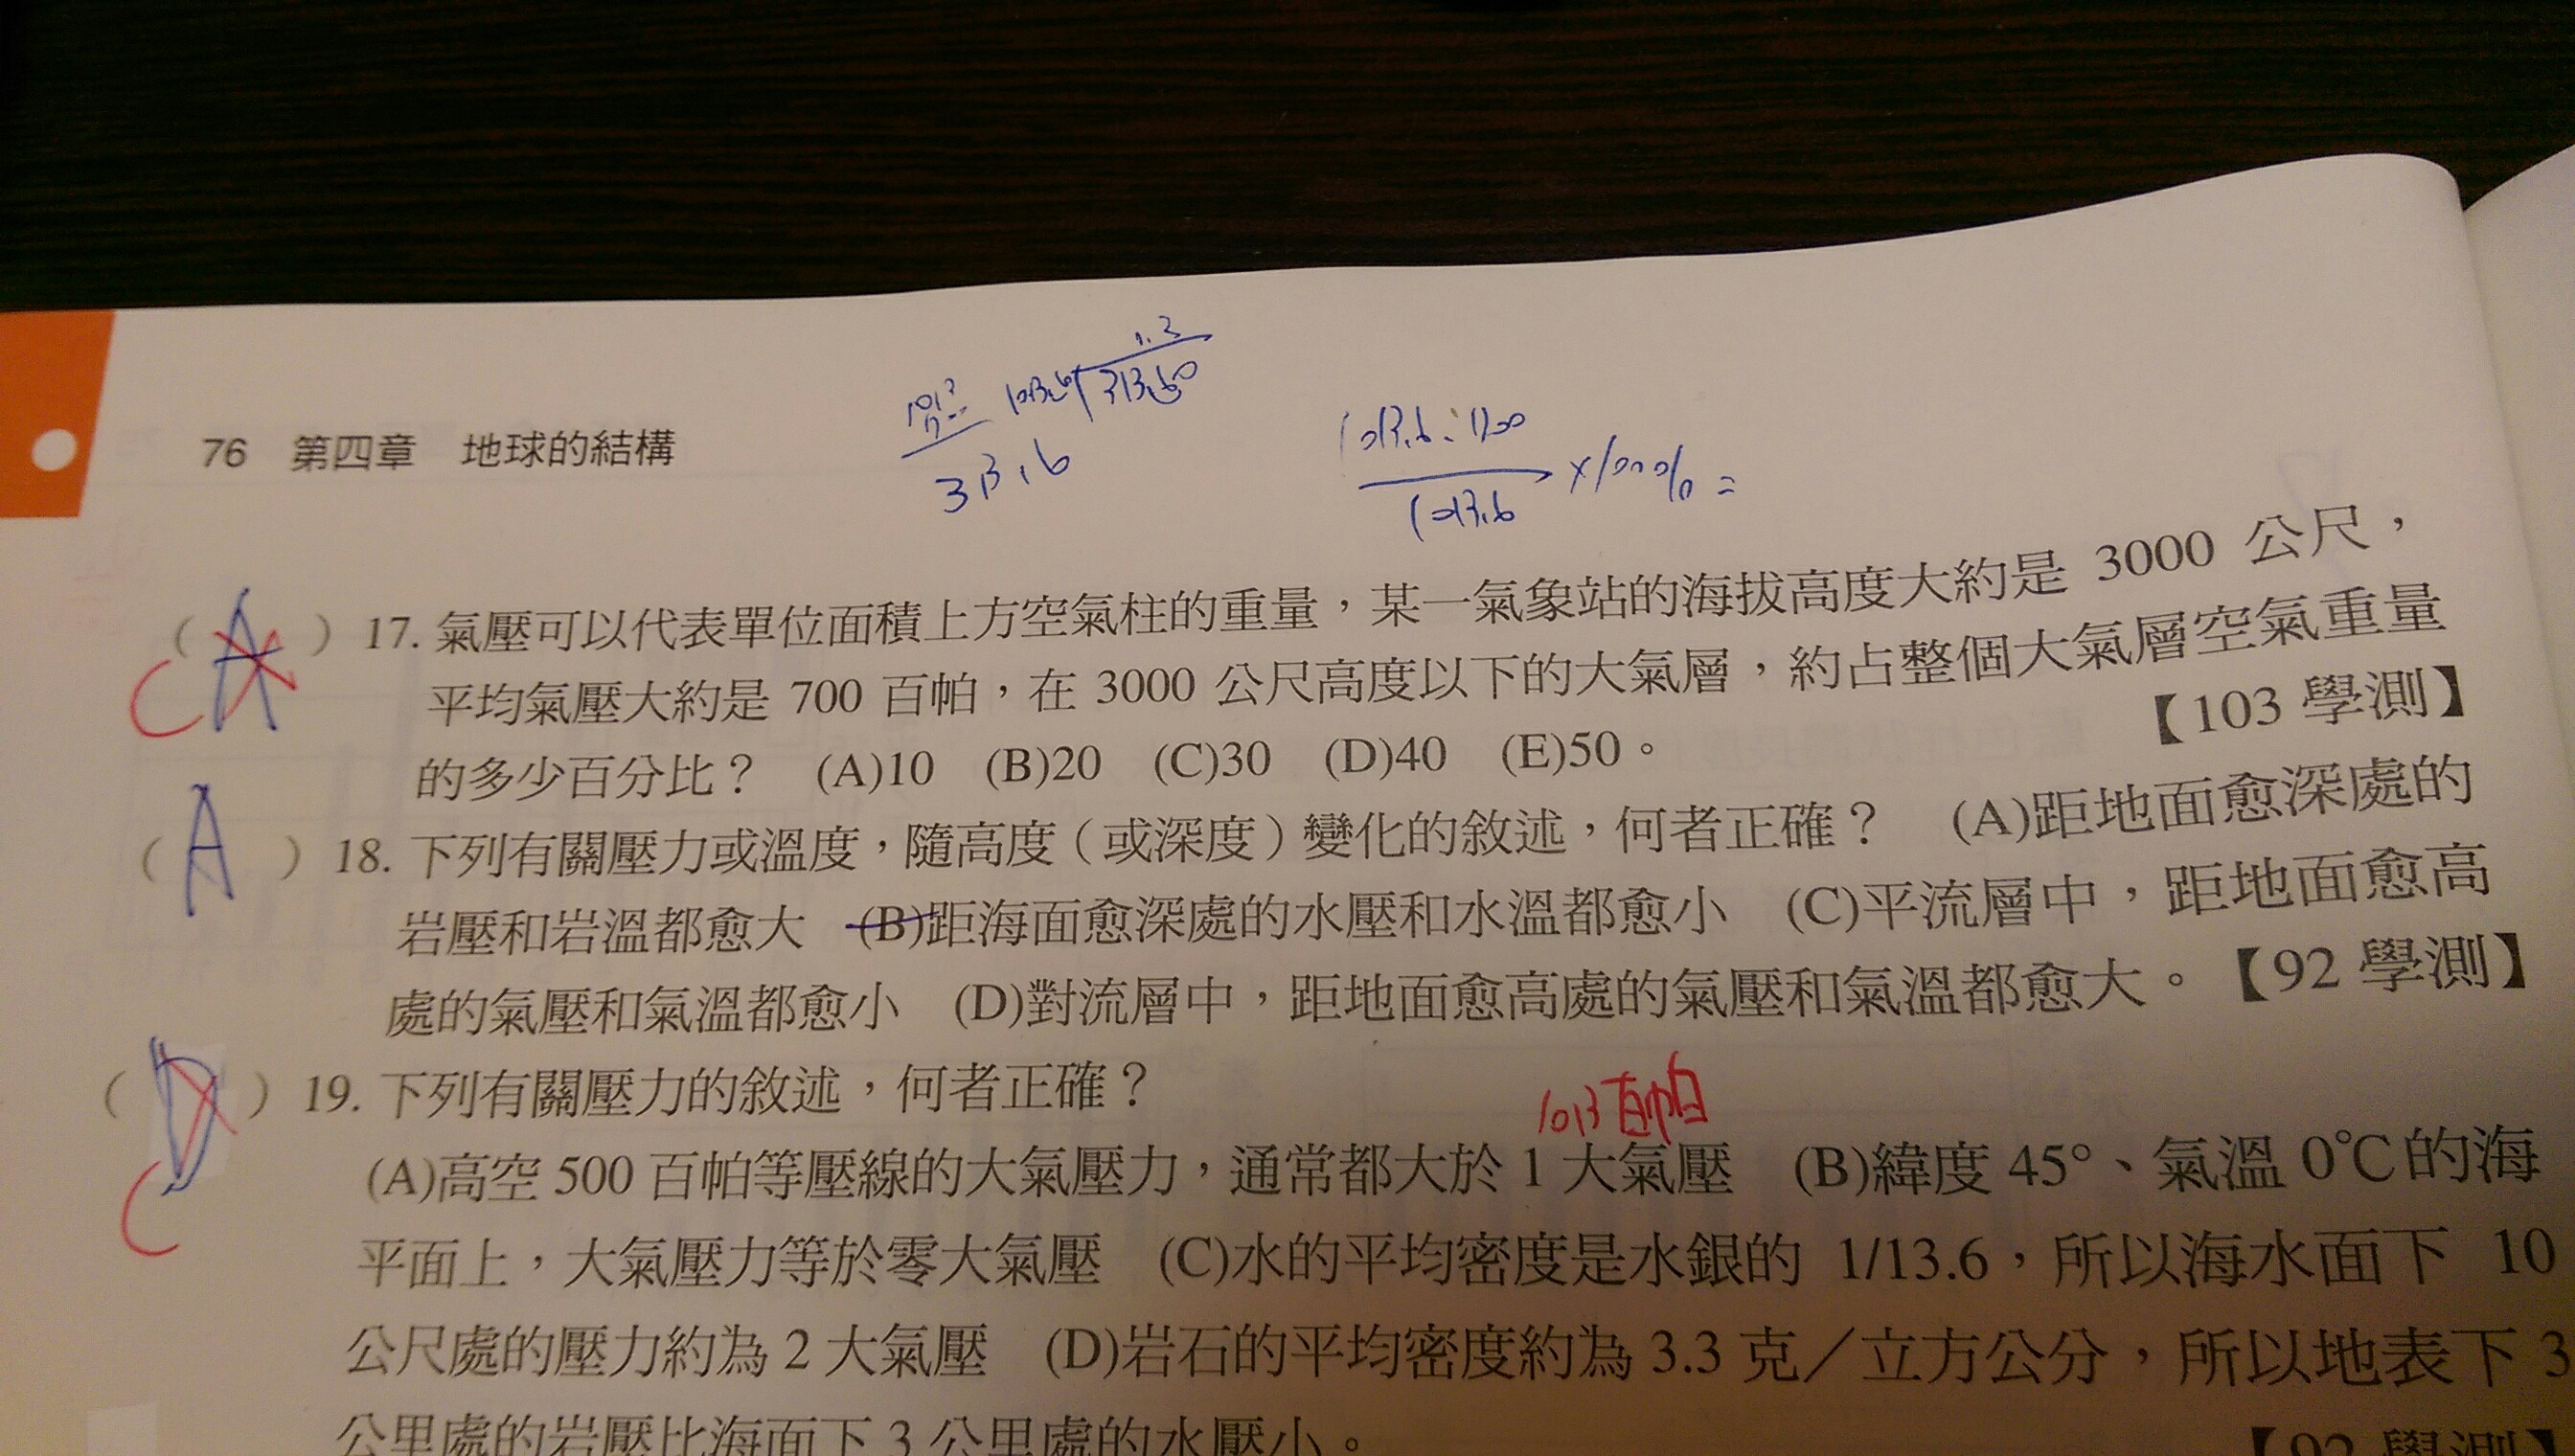 1.3
1013.6 313.60
313.6
1013.6-700
1013.6
×100%=
76 第四章 地球的結構
( A ) 17. 氣壓可以代表單位面積上方空氣柱的重量，某一氣象站的海拔高度大約是 3000 公尺，
C
平均氣壓大約是 700 百帕，在 3000 公尺高度以下的大氣層，約占整個大氣層空氣重量
的多少百分比？ (A)10 (B)20 (C)30 (D)40 (E)50。 【103 學測】
( A ) 18. 下列有關壓力或溫度，隨高度（或深度）變化的敘述，何者正確？ (A)距地面愈深處的
岩壓和岩溫都愈大 (B)距海面愈深處的水壓和水溫都愈小 (C)平流層中，距地面愈高
處的氣壓和氣溫都愈小 (D)對流層中，距地面愈高處的氣壓和氣溫都愈大。【92 學測】
( D ) 19. 下列有關壓力的敘述，何者正確？
1013百帕
(A)高空 500 百帕等壓線的大氣壓力，通常都大於 1 大氣壓 (B)緯度 45°、氣溫 0℃的海
C
平面上，大氣壓力等於零大氣壓 (C)水的平均密度是水銀的 1/13.6，所以海水面下 10
公尺處的壓力約為 2 大氣壓 (D)岩石的平均密度約為 3.3 克／立方公分，所以地表下 3
公里處的岩壓比海面下 3 公里處的水壓小。 【92 學測】